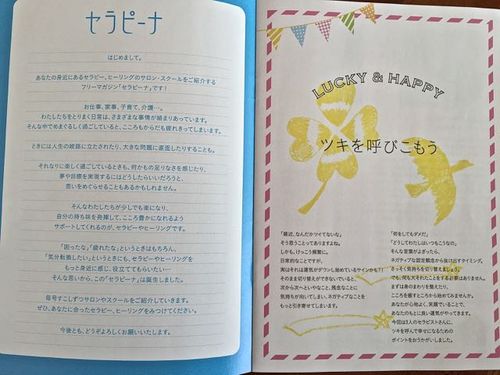 セラピーナ
はじめまして。
あなたの身近にあるセラピー、ヒーリングのサロン・スクールをご紹介する
フリーマガジン「セラピーナ」です！
お仕事、家事、子育て、介護…。
わたしたちをとりまく日常は、さまざまな事情が絡まりあっています。
そんな中でめまぐるしく過ごしていると、こころもからだも疲れきってしまいます。
ときには人生の岐路に立たされたり、大きな問題に直面したりすることも。
それなりに楽しく過ごしているときも、何かもの足りなさを感じたり、
夢や目標を実現するにはどうしたらいいだろうと、
思いをめぐらせることもあるかもしれません。
そんなわたしたちが少しでも楽になり、
自分の持ち味を発揮して、こころ豊かになれるよう
サポートしてくれるのが、セラピーやヒーリングです。
「困ったな」「疲れたな」というときはもちろん、
「気分転換したい」というときにも、セラピーやヒーリングを
もっと身近に感じ、役立ててもらいたい…
そんな思いから、この「セラピーナ」は誕生しました。
毎号すこしずつサロンやスクールをご紹介していきます。
ぜひ、あなたに合ったセラピー、ヒーリングをみつけてください。
今後とも、どうぞよろしくお願いいたします。
LUCKY & HAPPY
ツキを呼びこもう
「最近、なんだかツイてないな」
そう思うことってありますよね。
しかも、けっこう頻繁に。
日常的なことですが、
実はそれは運気がダウンし始めているサインかも？！
そのまま切り替えができないでいると、
次から次へといやなこと、残念なことに
気持ちが向いてしまい、ネガティブなことを
もっと引き寄せてしまいます。
「何をしてもダメだ」
「どうしてわたしはいつもこうなの」
そんな言葉がよぎったら、
ネガティブな固定観念から抜け出すタイミング。
さっそく気持ちを切り替えましょう。
でも、何も大それたことをする必要はありません。
まずは身のまわりを整えたり、
こころを癒すところから始めてみませんか。
あなたが心地よく、笑顔でいることで、
あなたのもとに良い運気がやってきます。
今回は3人のセラピストさんに、
ツキを呼んで幸せになるための
ポイントをおうかがいしました。